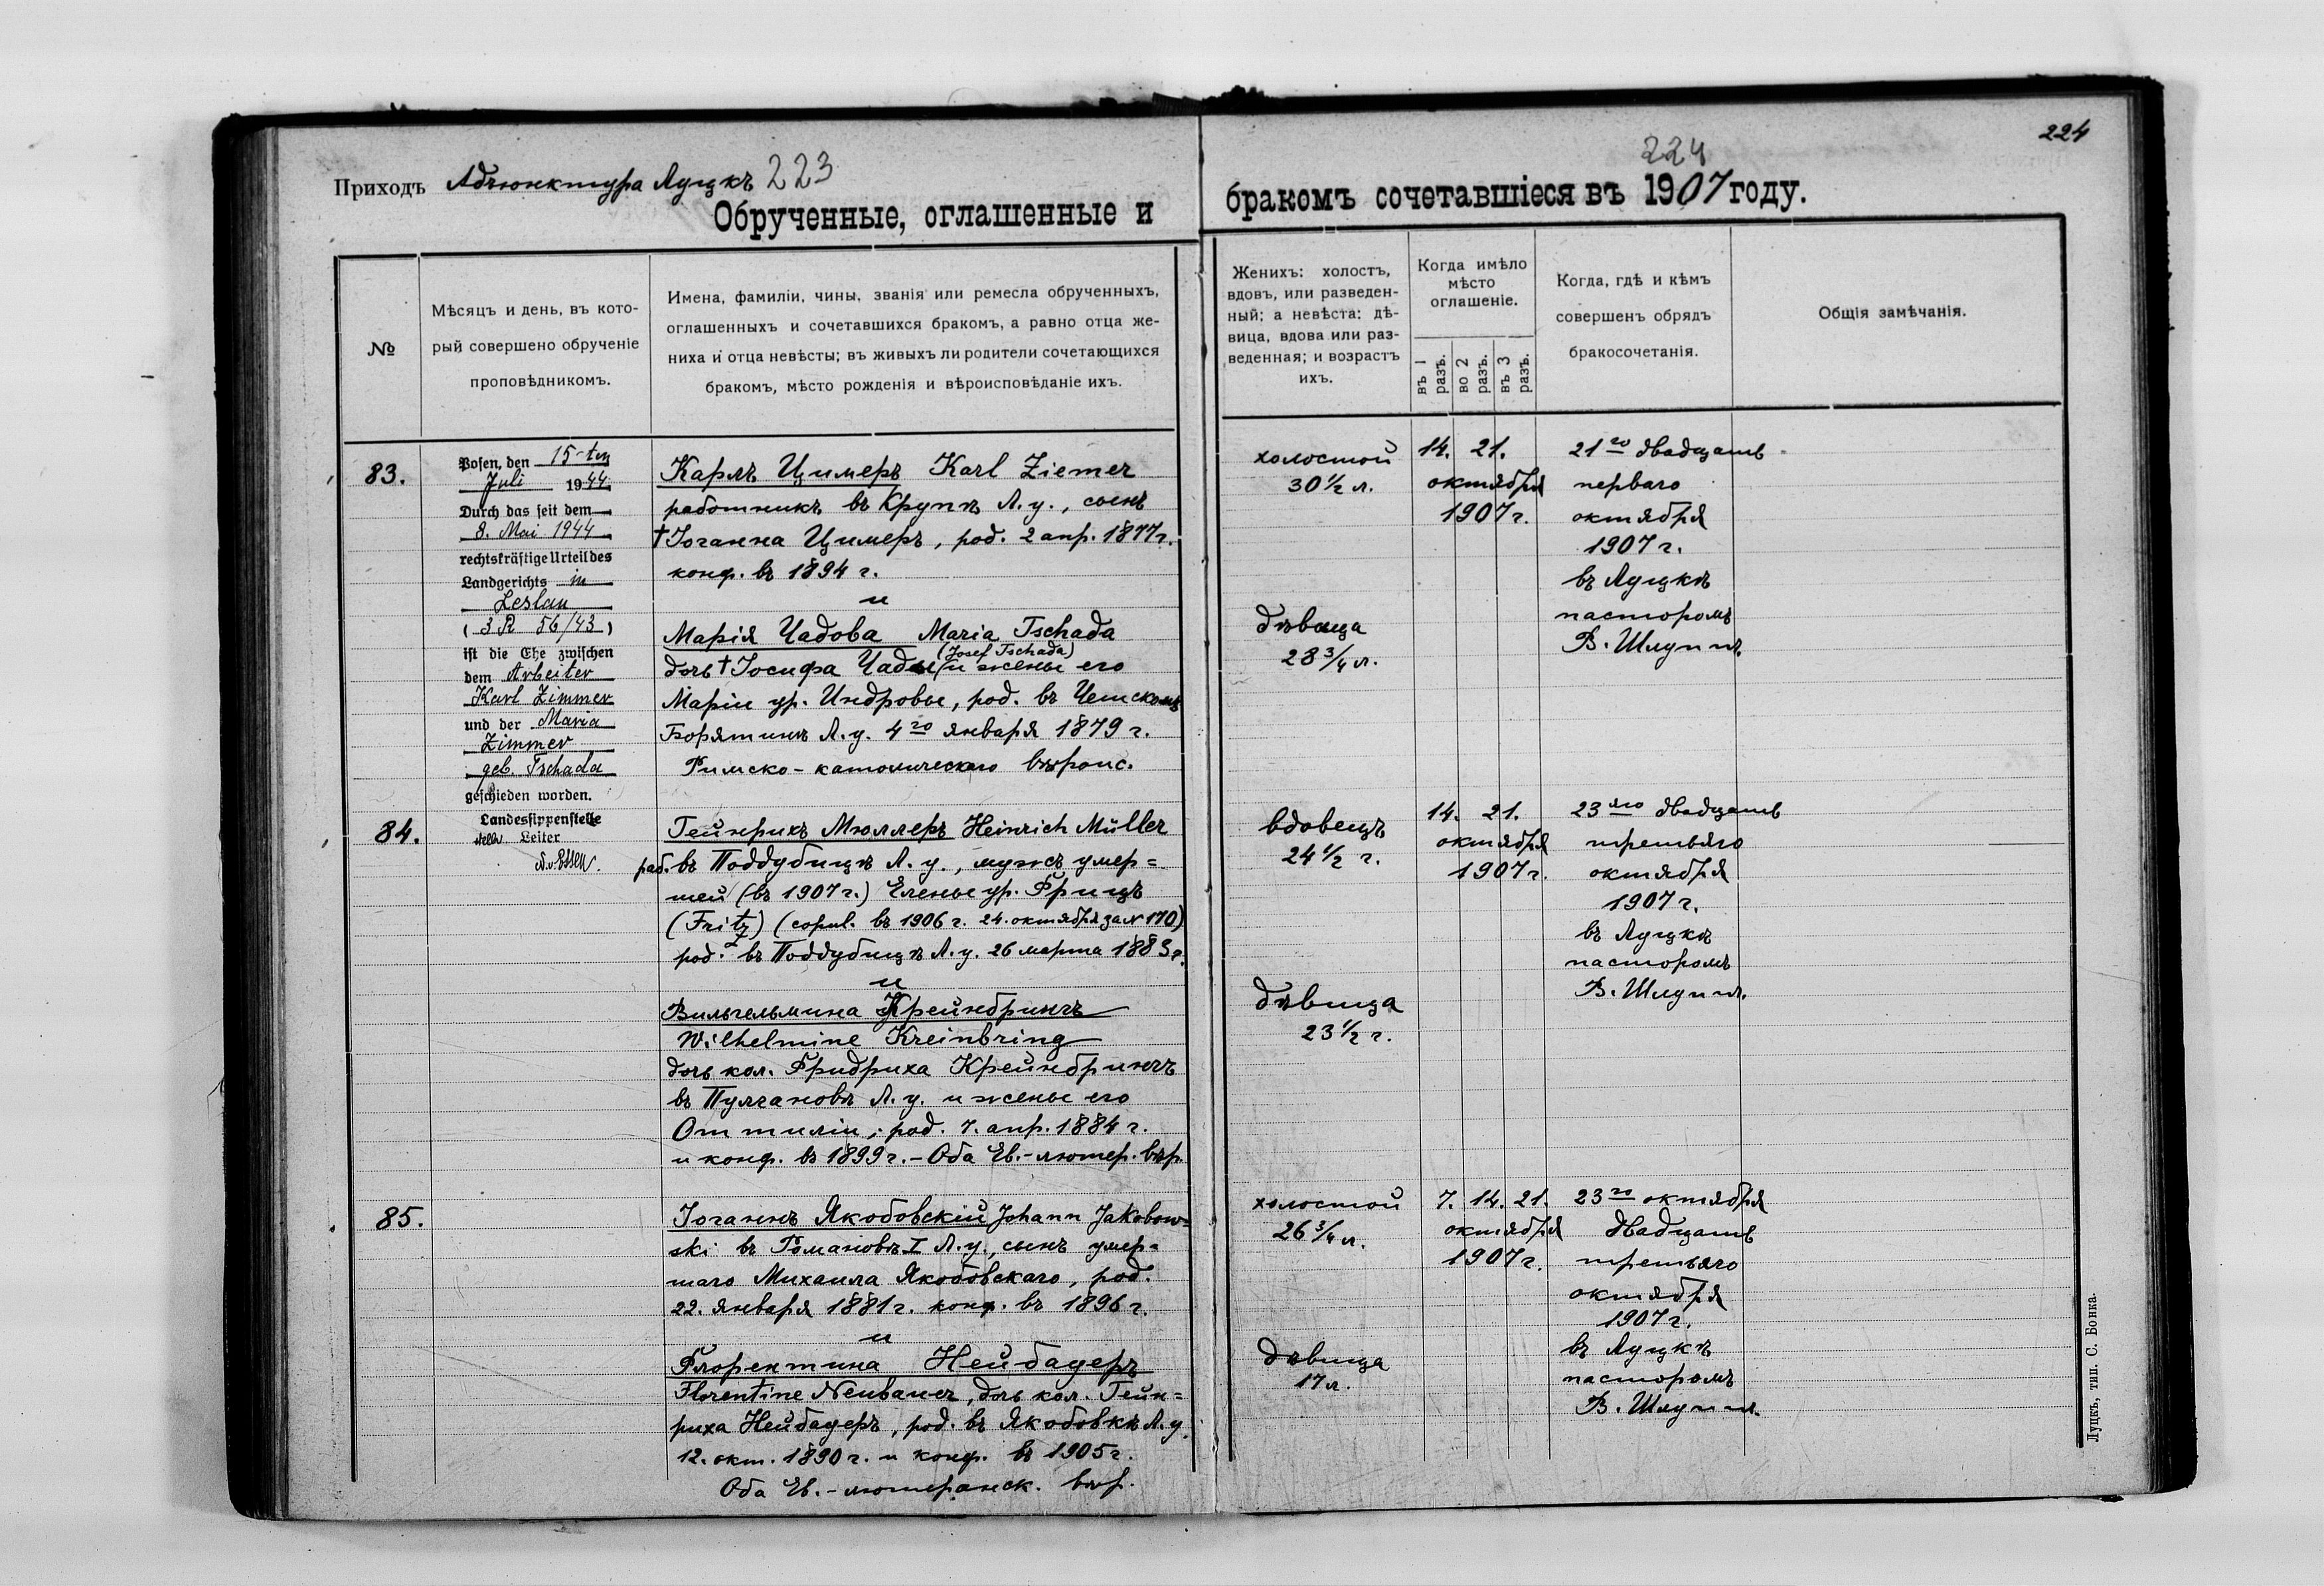 Приходъ Адъюнктура Луцкъ 223
Обрученные, оглашенные и
№
Мѣсяцъ и день, въ кото-
рый совершено обрученіе
проповѣдникомъ.
Имена, фамиліи, чины, званія или ремесла обрученныхъ,
оглашенныхъ и сочетавшихся бракомъ, а равно отца же-
ниха и отца невѣсты; въ живыхъ ли родители сочетающихся
бракомъ, мѣсто рожденія и вѣроисповѣданіе ихъ.
83.
Posen, den 15-ten
Juli 1944
Durch das seit dem
8. Mai 1944
rechtskräftige Urteil des
Landgerichts in
Leslau
( 3 R 56/43 )
ist die Ehe zwischen
dem Arbeiter
Karl Zimmer
und der Maria
Zimmer
geb. Tschada
geschieden worden.
Landessippenstelle
Leiter
Карлъ Цимеръ Karl Ziemer
работникъ въ Крупѣ Л. у., сынъ
† Іоганна Цимеръ, род. 2 апр. 1877 г.
конф. въ 1894 г.
и
Марія Чадова Maria Tschada
(Josef Tschada)
дочь † Іосифа Чады и жены его
Маріи ур. Индровы, род. въ Чешскомъ
Борятинѣ Л. у. 4го января 1879 г.
Римско-католическаго вѣроис.
84.
Гейнрихъ Мюллеръ Heinrich Müller
раб. въ Поддубицѣ Л. у., мужъ умер=
шей (въ 1907 г.) Елены ур. Фрицъ
(Fritz) (копул. въ 1906 г. 24. октября за № 170)
род. въ Поддубицѣ Л. у. 26 марта 1883 г.
и
Вильгельмина Крейнбрингъ
Wilhelmine Kreinbring
дочь кол. Фридриха Крейнбрингъ
въ Пулгановѣ Л. у. и жены его
Оттиліи; род. 7. апр. 1884 г.
и конф. въ 1899 г. – Оба Ев.-лютер. вѣр.
85.
Іоганнъ Якобовскій Johann Jakobow=
ski въ Романовѣ I Л. у., сынъ умер=
шаго Михаила Якобовскаго, род.
22. января 1881 г. конф. въ 1896 г.
и
Флорентина Нейбауеръ
Florentine Neubauer, дочь кол. Гейн=
риха Нейбауеръ, род. въ Якобовкѣ Л. у.
12. окт. 1890 г. и конф. въ 1905 г.
Оба Ев.-лютеранск. вѣр.
224
224
бракомъ сочетавшіеся въ 1907 году.
Женихъ: холостъ,
вдовъ, или разведен-
ный; а невѣста: дѣ-
вица, вдова или раз-
веденная; и возрастъ
ихъ.
Когда имѣло
мѣсто
оглашеніе.
въ 1 разъ.
во 2 разъ.
въ 3 разъ.
Когда, гдѣ и кѣмъ
совершенъ обрядъ
бракосочетанія.
Общія замѣчанія.
холостой
30 ½ л.
дѣвица
28 ¾ л.
14. 21.
октября
1907 г.
21го двадцать
перваго
октября
1907 г.
въ Луцкѣ
пасторомъ
В. Шлуппъ.
вдовецъ
24 ½ г.
дѣвица
23 ½ г.
14. 21.
октября
1907 г.
23яго двадцать
третьяго
октября
1907 г.
въ Луцкѣ
пасторомъ
В. Шлуппъ.
холостой
26 ¾ л.
дѣвица
17 л.
7. 14. 21.
октября
1907 г.
23го октября
двадцать
третьяго
октября
1907 г.
въ Луцкѣ
пасторомъ
В. Шлуппъ.
Луцкъ, тип. С. Бонка.